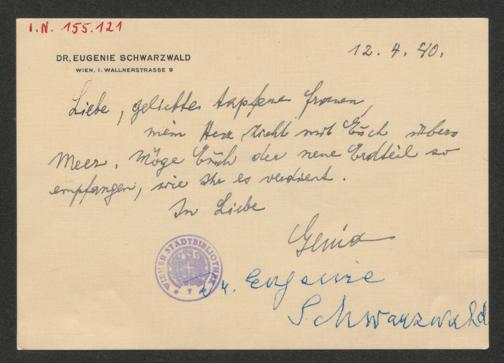 I.N. 155.121
12. 4. 40.
DR. EUGENIE SCHWARZWALD
WIEN, I. WALLNERSTRASSE 9
Liebe, geliebte tapfere Frauen,
mein Herz zieht mit Euch übers
Meer. Möge Euch der neue Erdteil so
empfangen, wie Ihr es verdient.
In Liebe
Genia
WIENER STADTBIBLIOTHEK
Dr. Eugenie
Schwarzwald